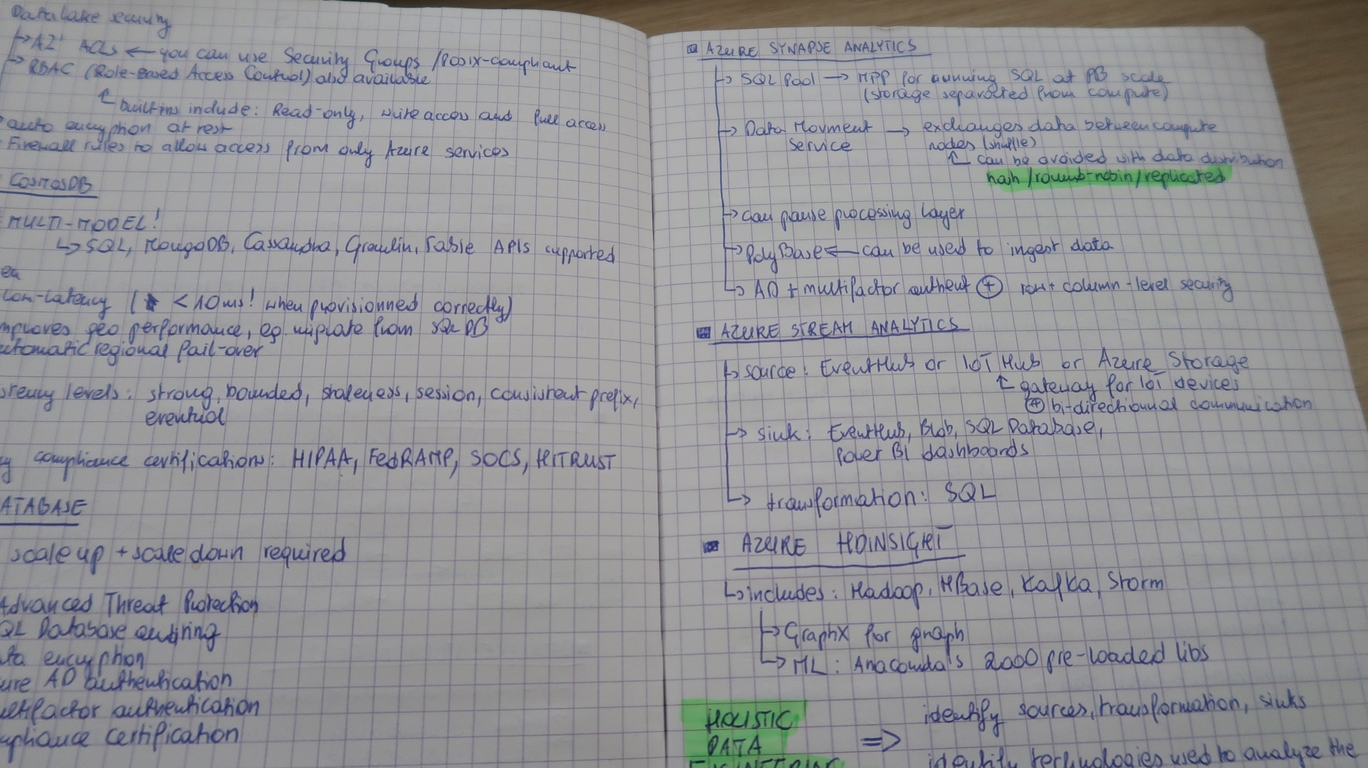 Data Lake security
→ AZ' ACLs ← you can use Security Groups / Posix-compliant
→ RBAC (Role-Based Access Control) also available
↑ built-ins include: Read-only, write access and full access
auto encryption at rest
Firewall rules to allow access from only Azure services
COSMOSDB
MULTI-MODEL!
↳ SQL, MongoDB, Cassandra, Gremlin, Table APIs supported
low-latency ( < 10ms! when provisionned correctly)
mproves geo performance, eg. migrate from SQL DB
utomatic regional fail-over
stency levels: strong, bounded, staleness, session, consistent prefix,
eventual
y compliance certifications: HIPAA, FedRAMP, SOCS, HITRUST
ATABASE
scale up + scale down required
Advanced Threat Protection
QL Database auditing
ta encryption
ure AD authentication
ltifactor authentication
mpliance certification
AZURE SYNAPSE ANALYTICS
→ SQL Pool → MPP for running SQL at PB scale
(storage separated from compute)
→ Data Movment → exchanges data between compute
Service nodes (shuffle)
↑ can be avoided with data distribution
hash/round-robin/replicated
→ can pause processing layer
→ PolyBase ← can be used to ingest data
→ AD + multifactor authent ⊕ row + column-level security
AZURE STREAM ANALYTICS
→ source: EventHub or IoT Hub or Azure Storage
↑ gateway for IoT devices
⊕ bi-directionnal communication
→ sink: EventHub, Blob, SQL Database,
Power BI dashboards
→ transformation: SQL
AZURE HDINSIGHT
↳ includes: Hadoop, HBase, Kafka, Storm
→ GraphX for graph
→ ML: Anaconda's 2000 pre-loaded libs
HOLISTIC
DATA
ENGINEERING
⇒ identify sources, transformation, sinks
identify technologies used to analyze the